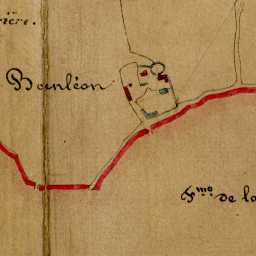 ière.
Banléon
F.mo de la